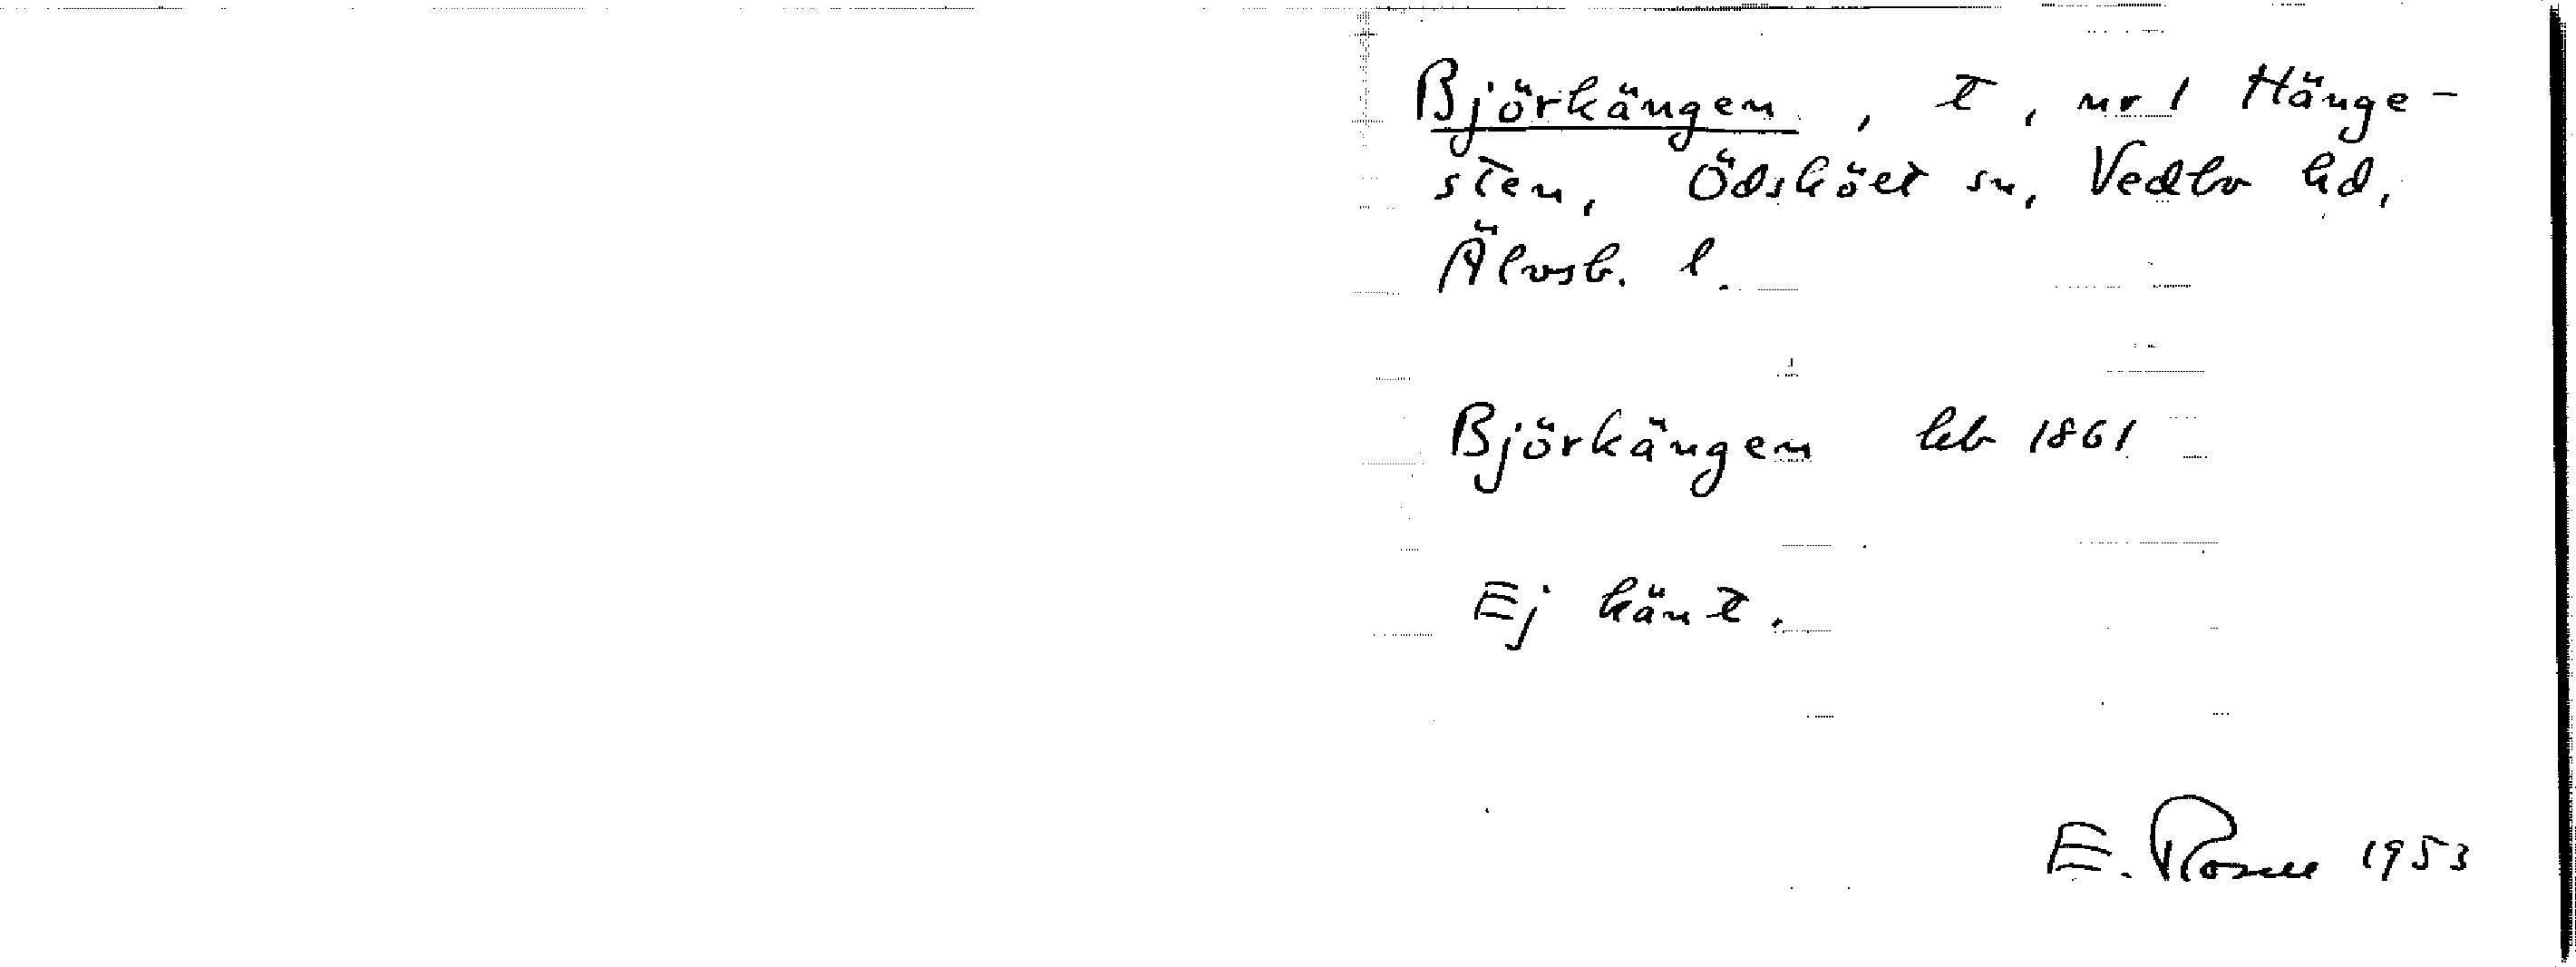 Björkängen, t, nr 1 Hänge-
sten, Ödskölt sn, Vedbo hd,
Älvsb. l.
Björkängen hb 1861
Ej känt.
E. 1953